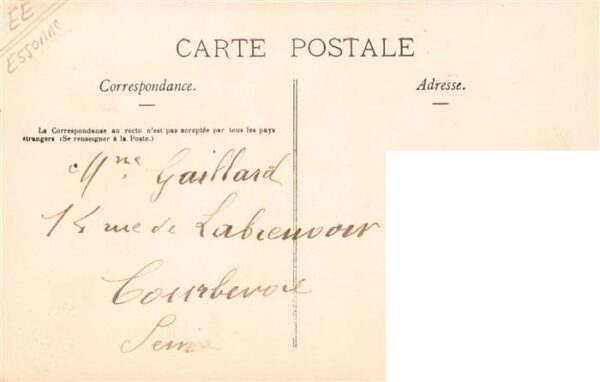 EE
ESSONNE
CARTE POSTALE
Correspondance.
Adresse.
La Correspondance au recto n'est pas acceptée par tous les pays
étrangers (Se renseigner à la Poste.)
Mme Gaillard
rue de
Courbevoie
Seine